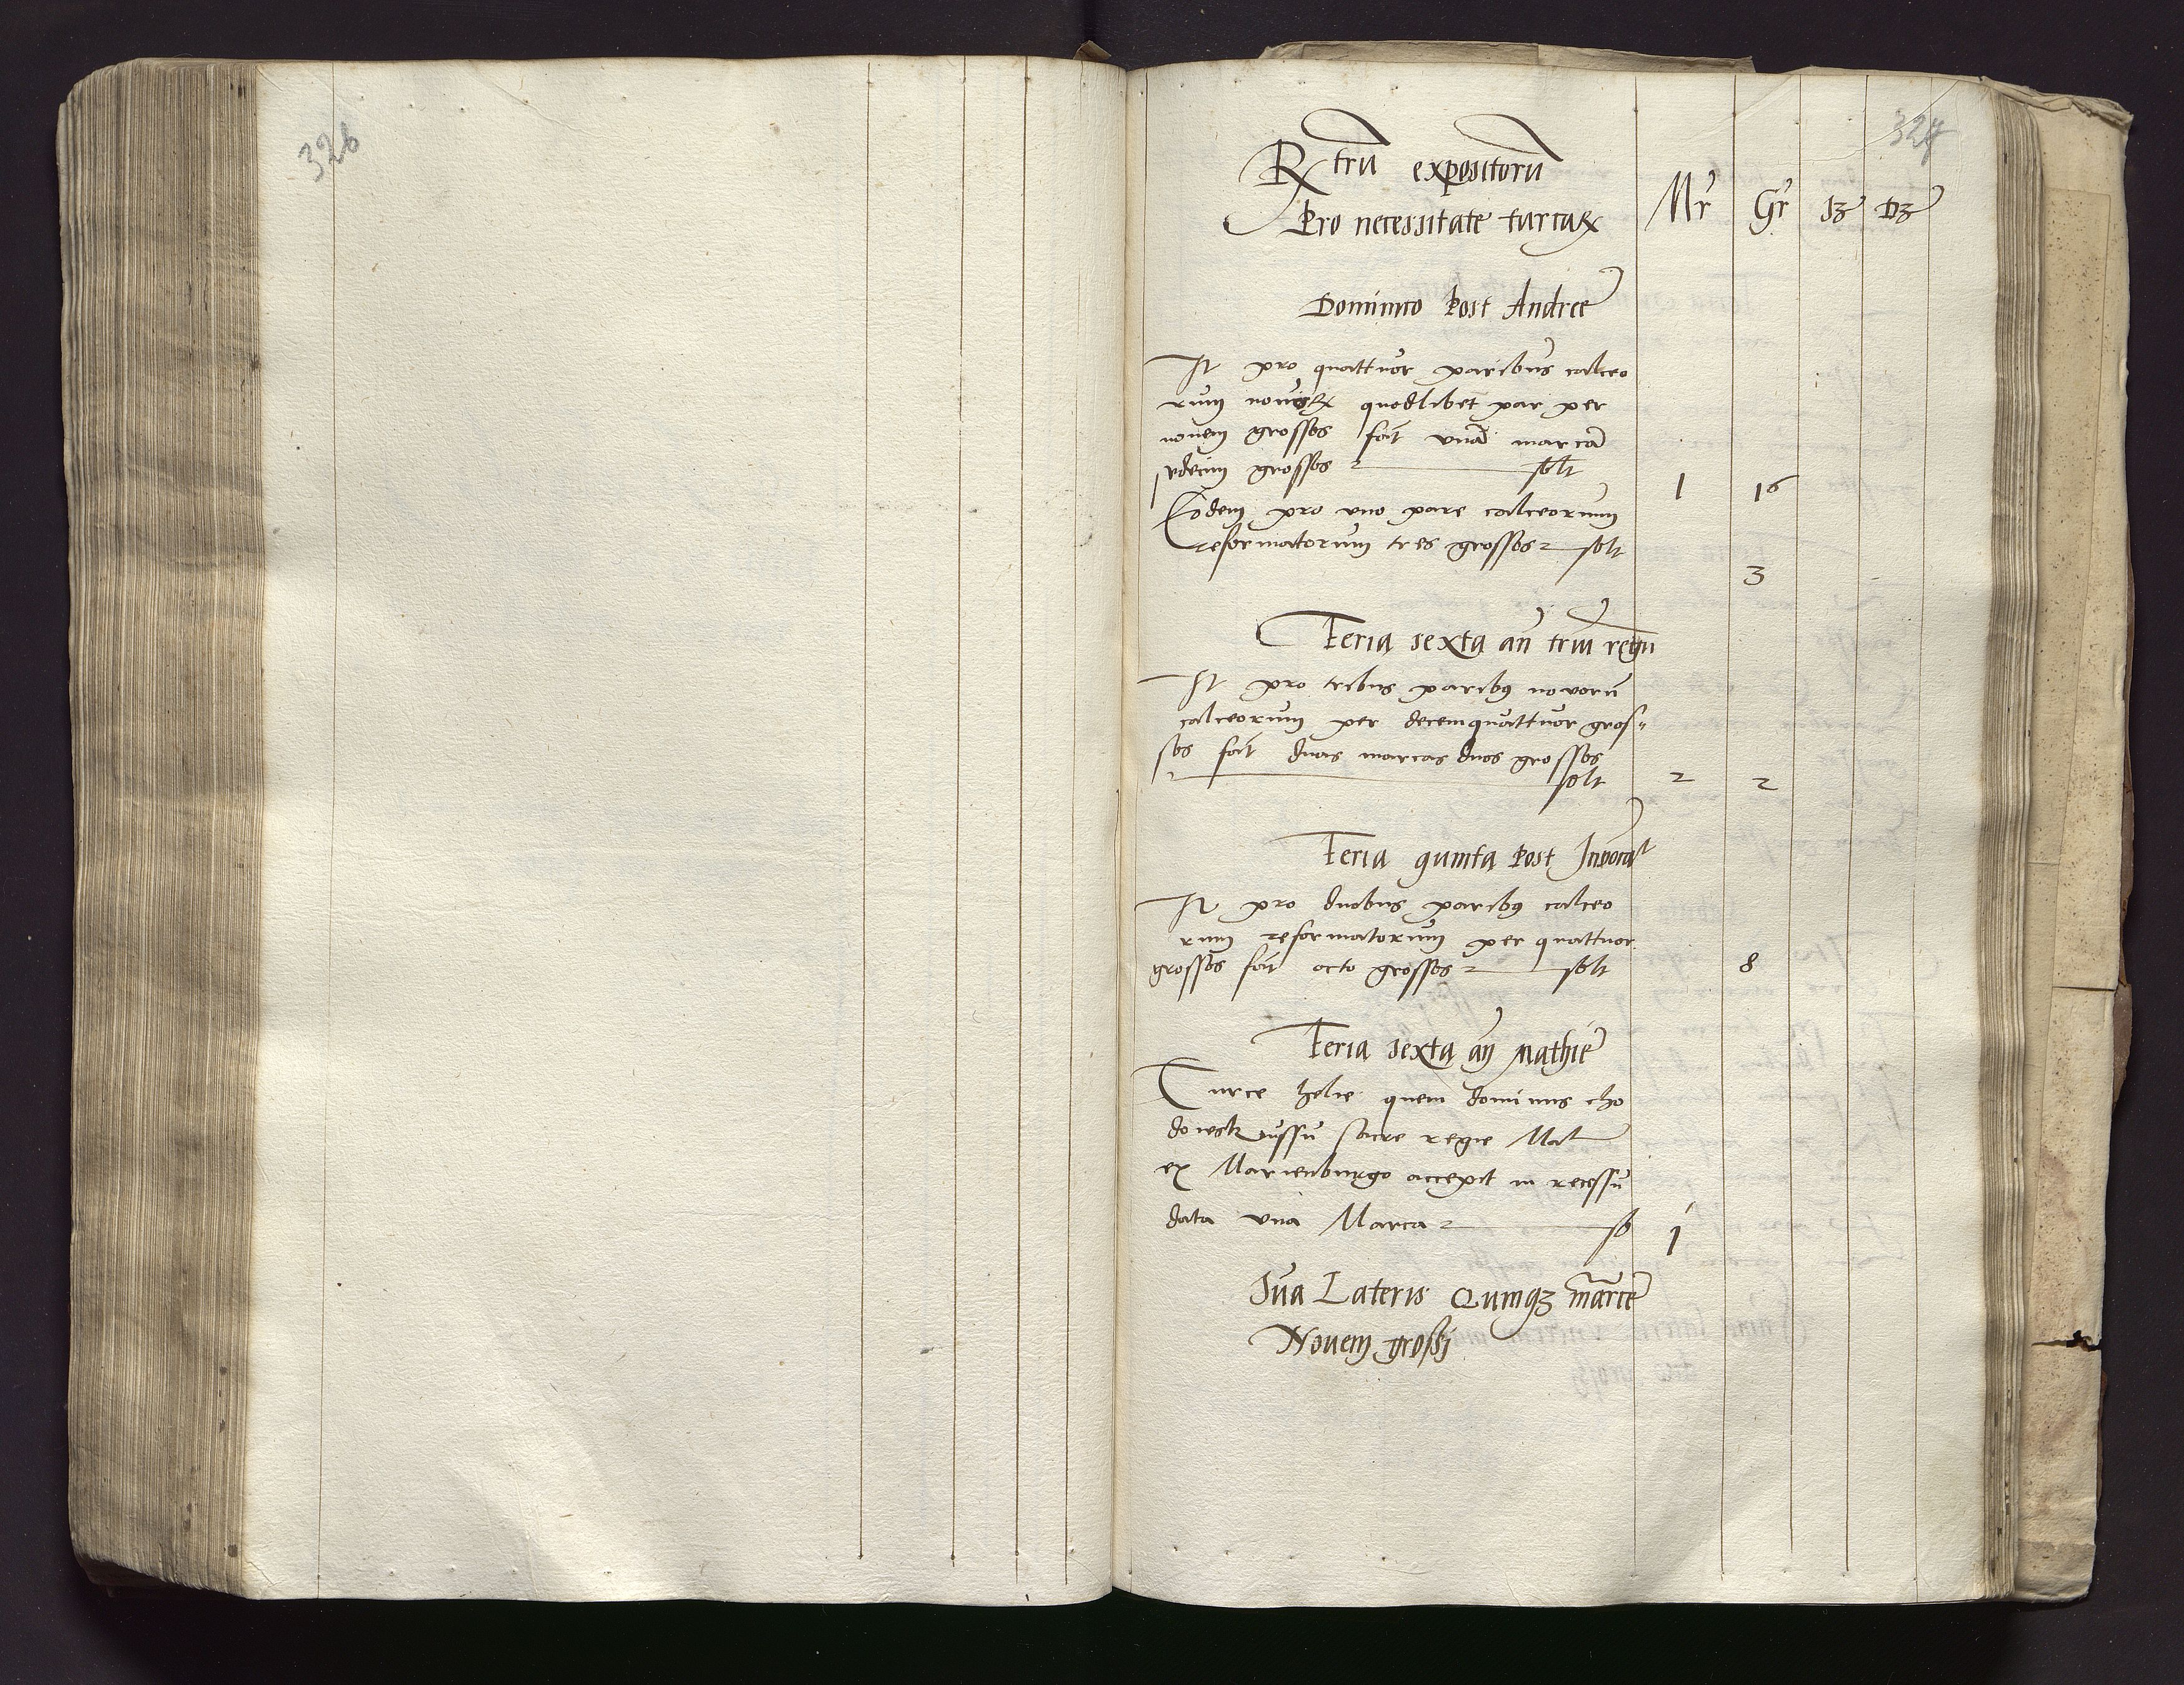 326
327
Rx trũ expositorũ
Pro necessitate turcaꝝ
Mr Gr Sʒ Dʒ
Dominico Post Andree
It pro quattuor paribus calceo
rum novoꝝ quodlibet par per
novem grossos fait unã marcã
sedecim grossos solt
1 16
Eodem pro uno pare calceorum
reformatorum tres grossos solt
3
Feria sexta añ triũ regũ
It pro tribus paribꝰ novorũ
calceorum per decemquattuor gros〃
sos fait duas marcas duos grossos
solt
2 2
Feria quinta Post Invocat
It pro duobus paribꝰ calceo
rum reformatorum per quattuor
grossos fait octo grossos solt
8
Feria sexta añ Mathie
Turce helie quem dominus cho
dowsk iussu sacre regie Mat
ex Marienburgo accepit in recessu
data una Marca so
1
Sũa Lateris Quinqʒ marce
Novem grossi